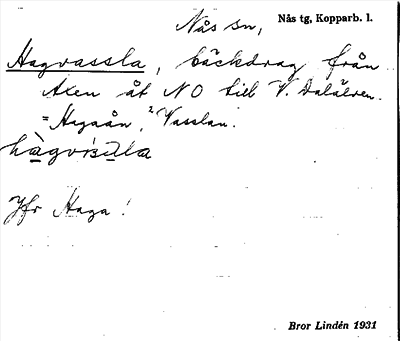 Nås sn,
Nås tg, Kopparb. l.
Hagvassla, bäckdrag från
Axen åt NO till V. Dalälven.
= Hagaån, 2 Vasslan.
Jfr Haga!
Bror Lindén 1931